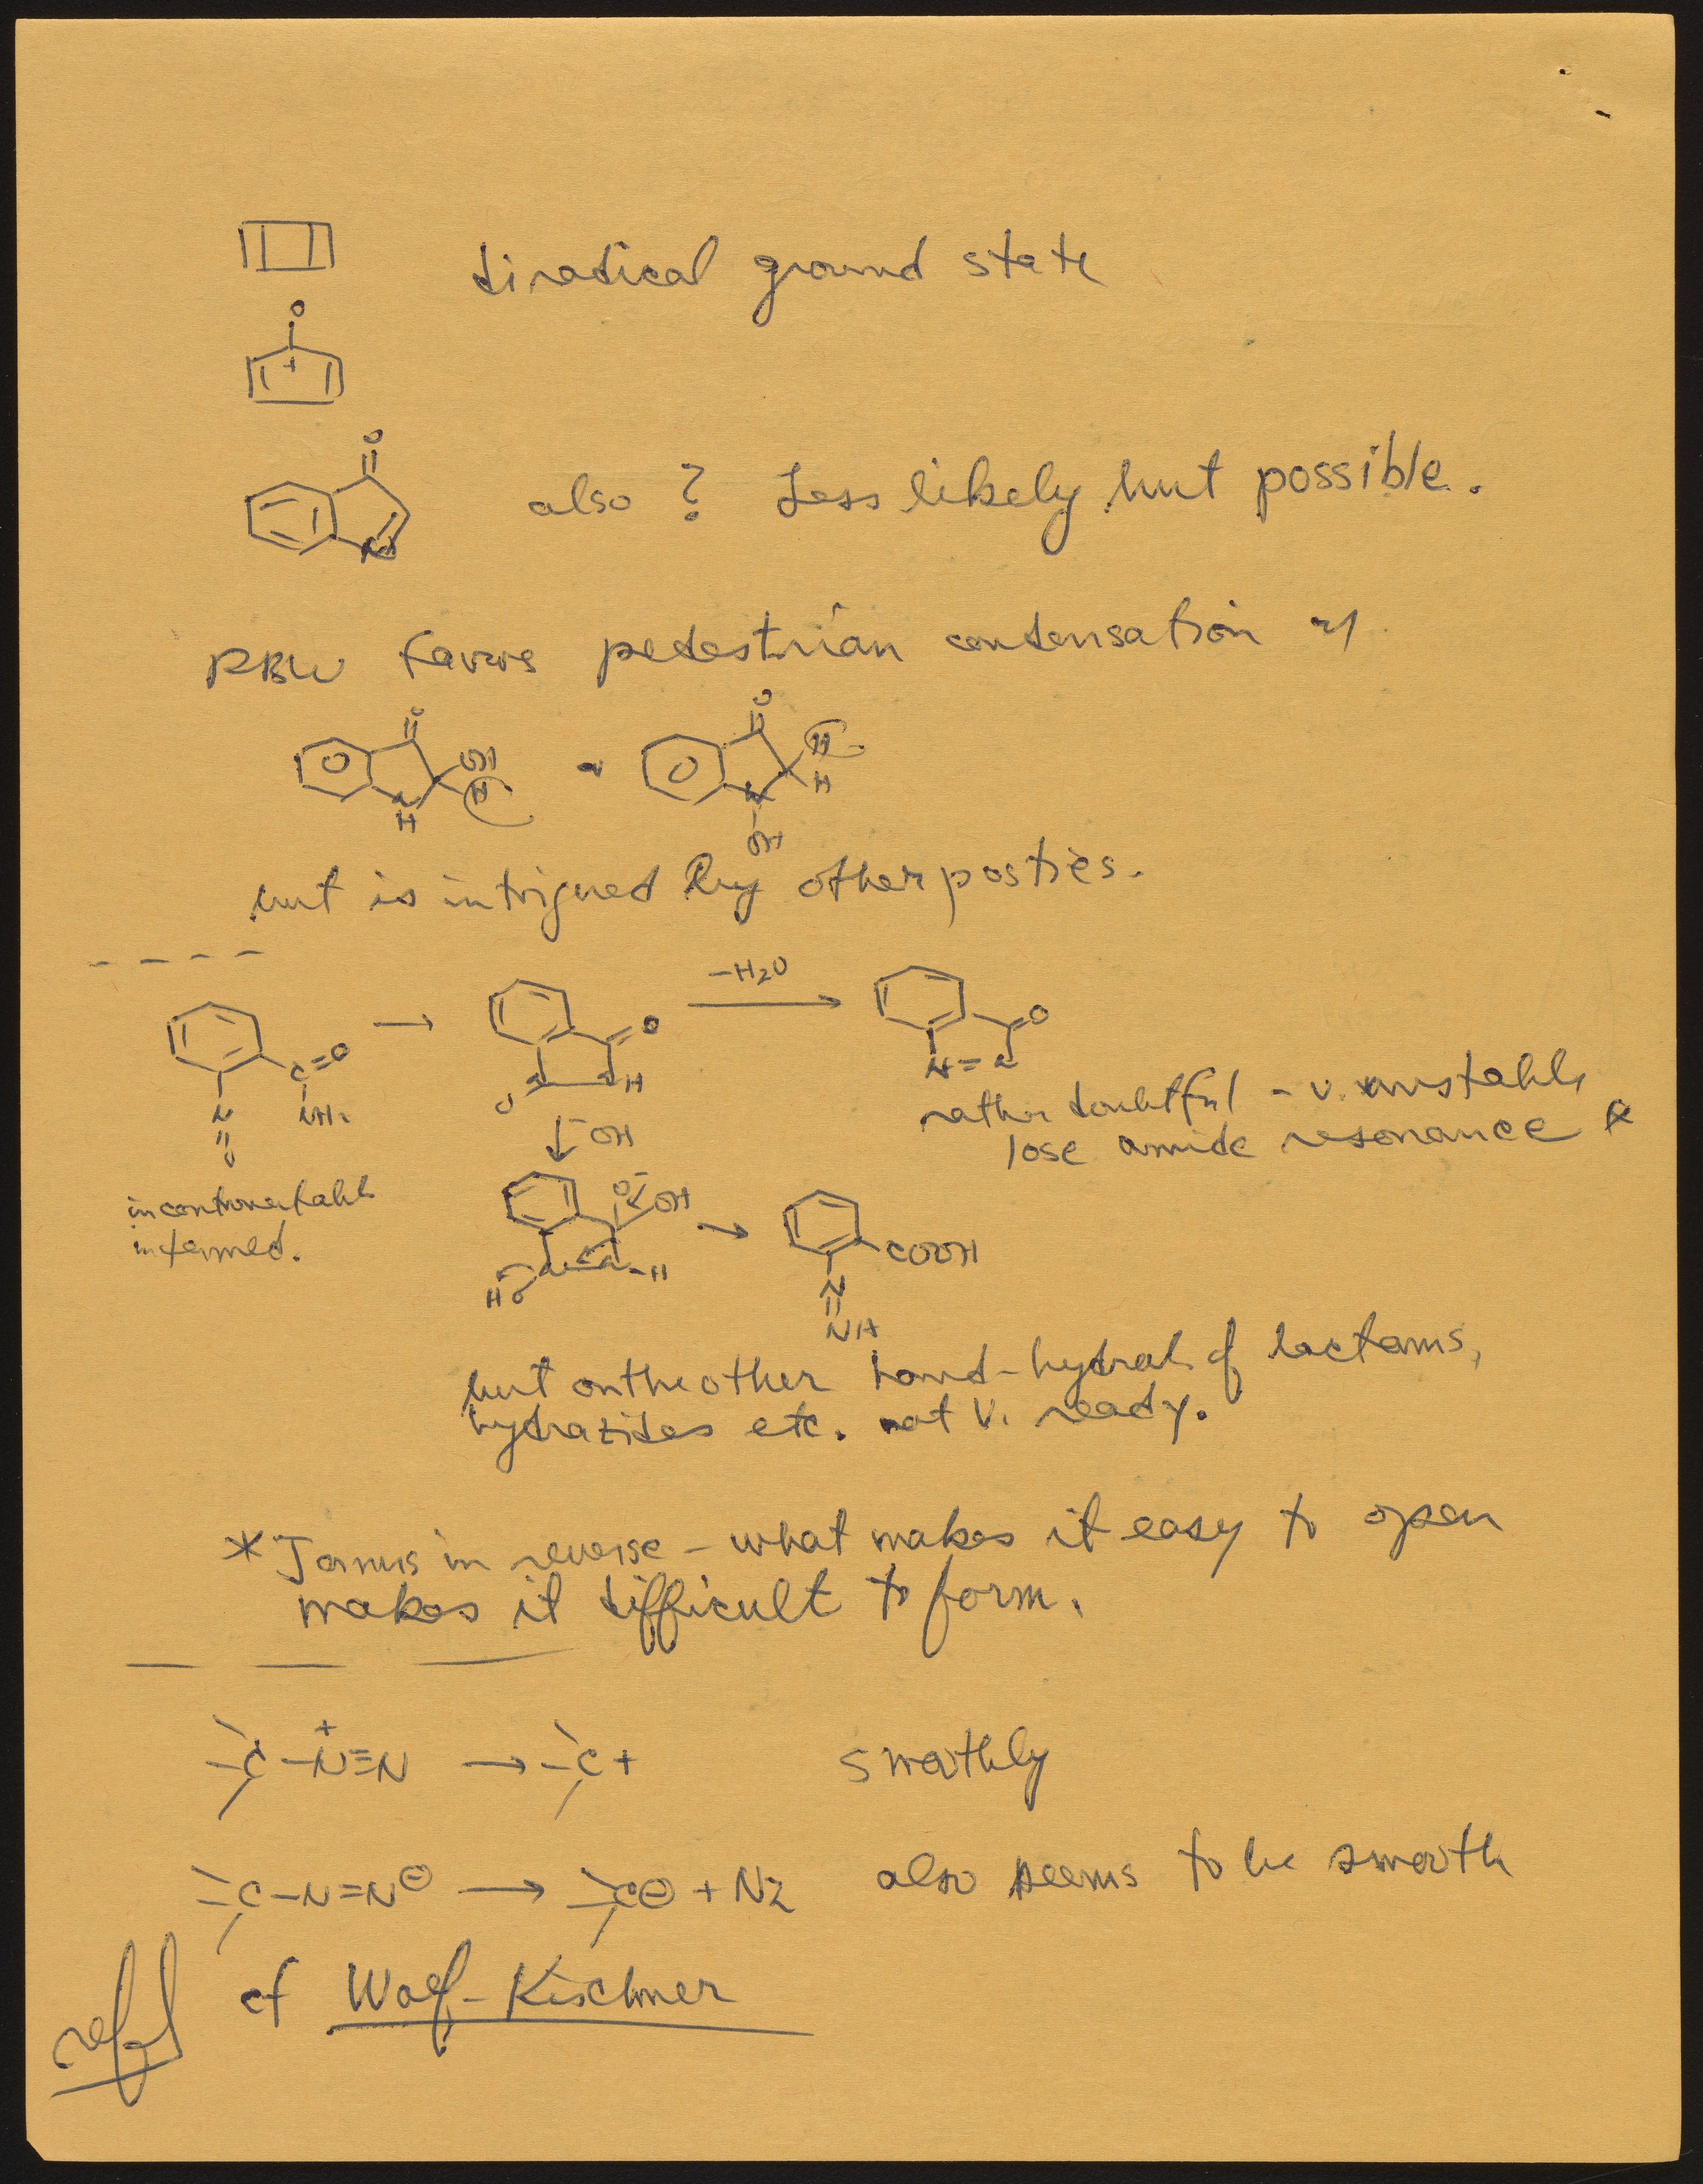 diradical ground state
O
+
O
N
also ? Less likely but possible.
RBW favors pedestrian condensation w/
O
OH
H
N
H
O
H
H
N
OH
but is intrigued by other posties.
C=O
NH2
N
O
O
N
N
H
O
-H2O
O
N=N
rather doubtful - v. unstable
lose amide resonance *
-OH
incontrovertable
intermed.
O-
OH
H
O
N
N-H
COOH
N
NH
but on the other hand - hydrol. of lactams,
hydrazides etc. not v. ready.
* Janus in reverse - what makes it easy to open
makes it difficult to form.
C-N+≡N → C+ smoothly
C-N=N⊖ → C⊖ + N2 also seems to be smooth
cf Wolf-Kischner